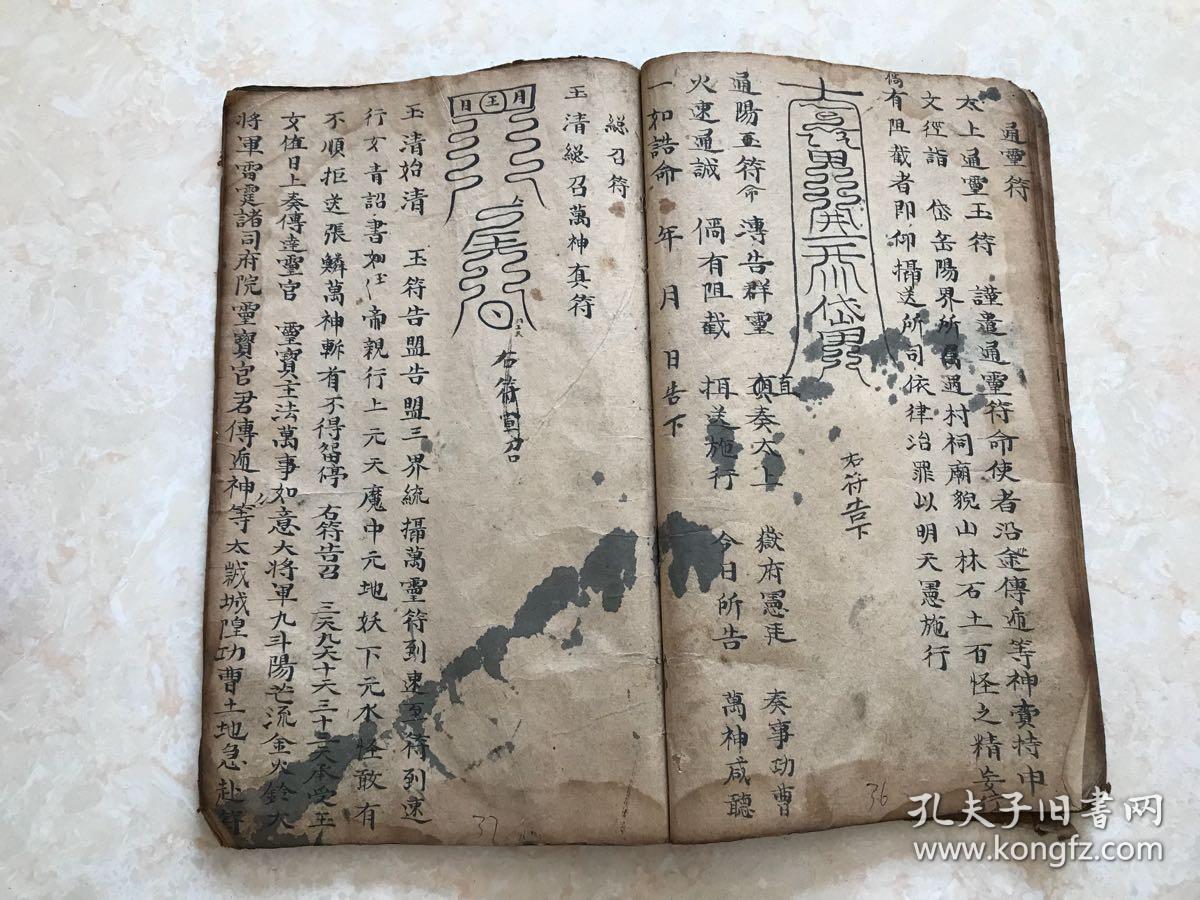 通靈符
太上通靈玉符 謹遣通靈符命使者沿途傳遞等神賫特申
文徑詣 岱岳陽界所屬遇村祠廟貌山林石土百怪之精妄行
倘有阻截者即仰攝送所司依律治罪以明天憲施行
右符告下
通陽玉符命 溥告群靈 直奏太上 嶽府憲廷 奏事功曹
火速通誠 倘有阻截 押送施行 今日所告 萬神咸聽
一如誥命 年 月 日告下
36
總召符
玉清總召萬神真符
日王月
右符宣召
玉清始清 玉符告盟告盟三界統攝萬靈符到速至符到速
行女青詔書如玉帝親行上元天魔中元地妖下元水怪敢有
不順拒送張鱗萬神斬首不得留停 右符告召 三天九天十六三十二天承受王
文值日上奏傳達靈官 靈寶主法萬事如意大將軍九斗陽芒流金火鈴大
將軍雷霆諸司府院靈寶官君傳遞神等太歲城隍功曹土地急赴符
37
孔夫子旧书网
www.kongfz.com